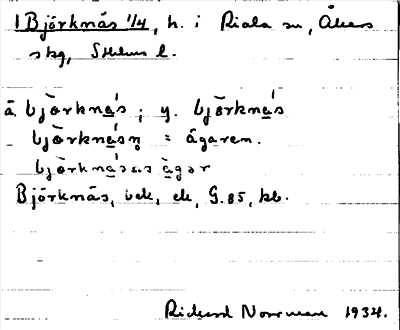 1 Björknäs 1/4, h. i Riala sn, Åkers
skg, Sthlms l.
å bjö̀rkná̱s ; y. bjö̀rkná̱s
bjö̀rkná̱sn̥ = ägaren.
bjö̀rkná̱s ägər
Björknäs, uek, ek, G. 85, kb.
Richard Norrman 1934.